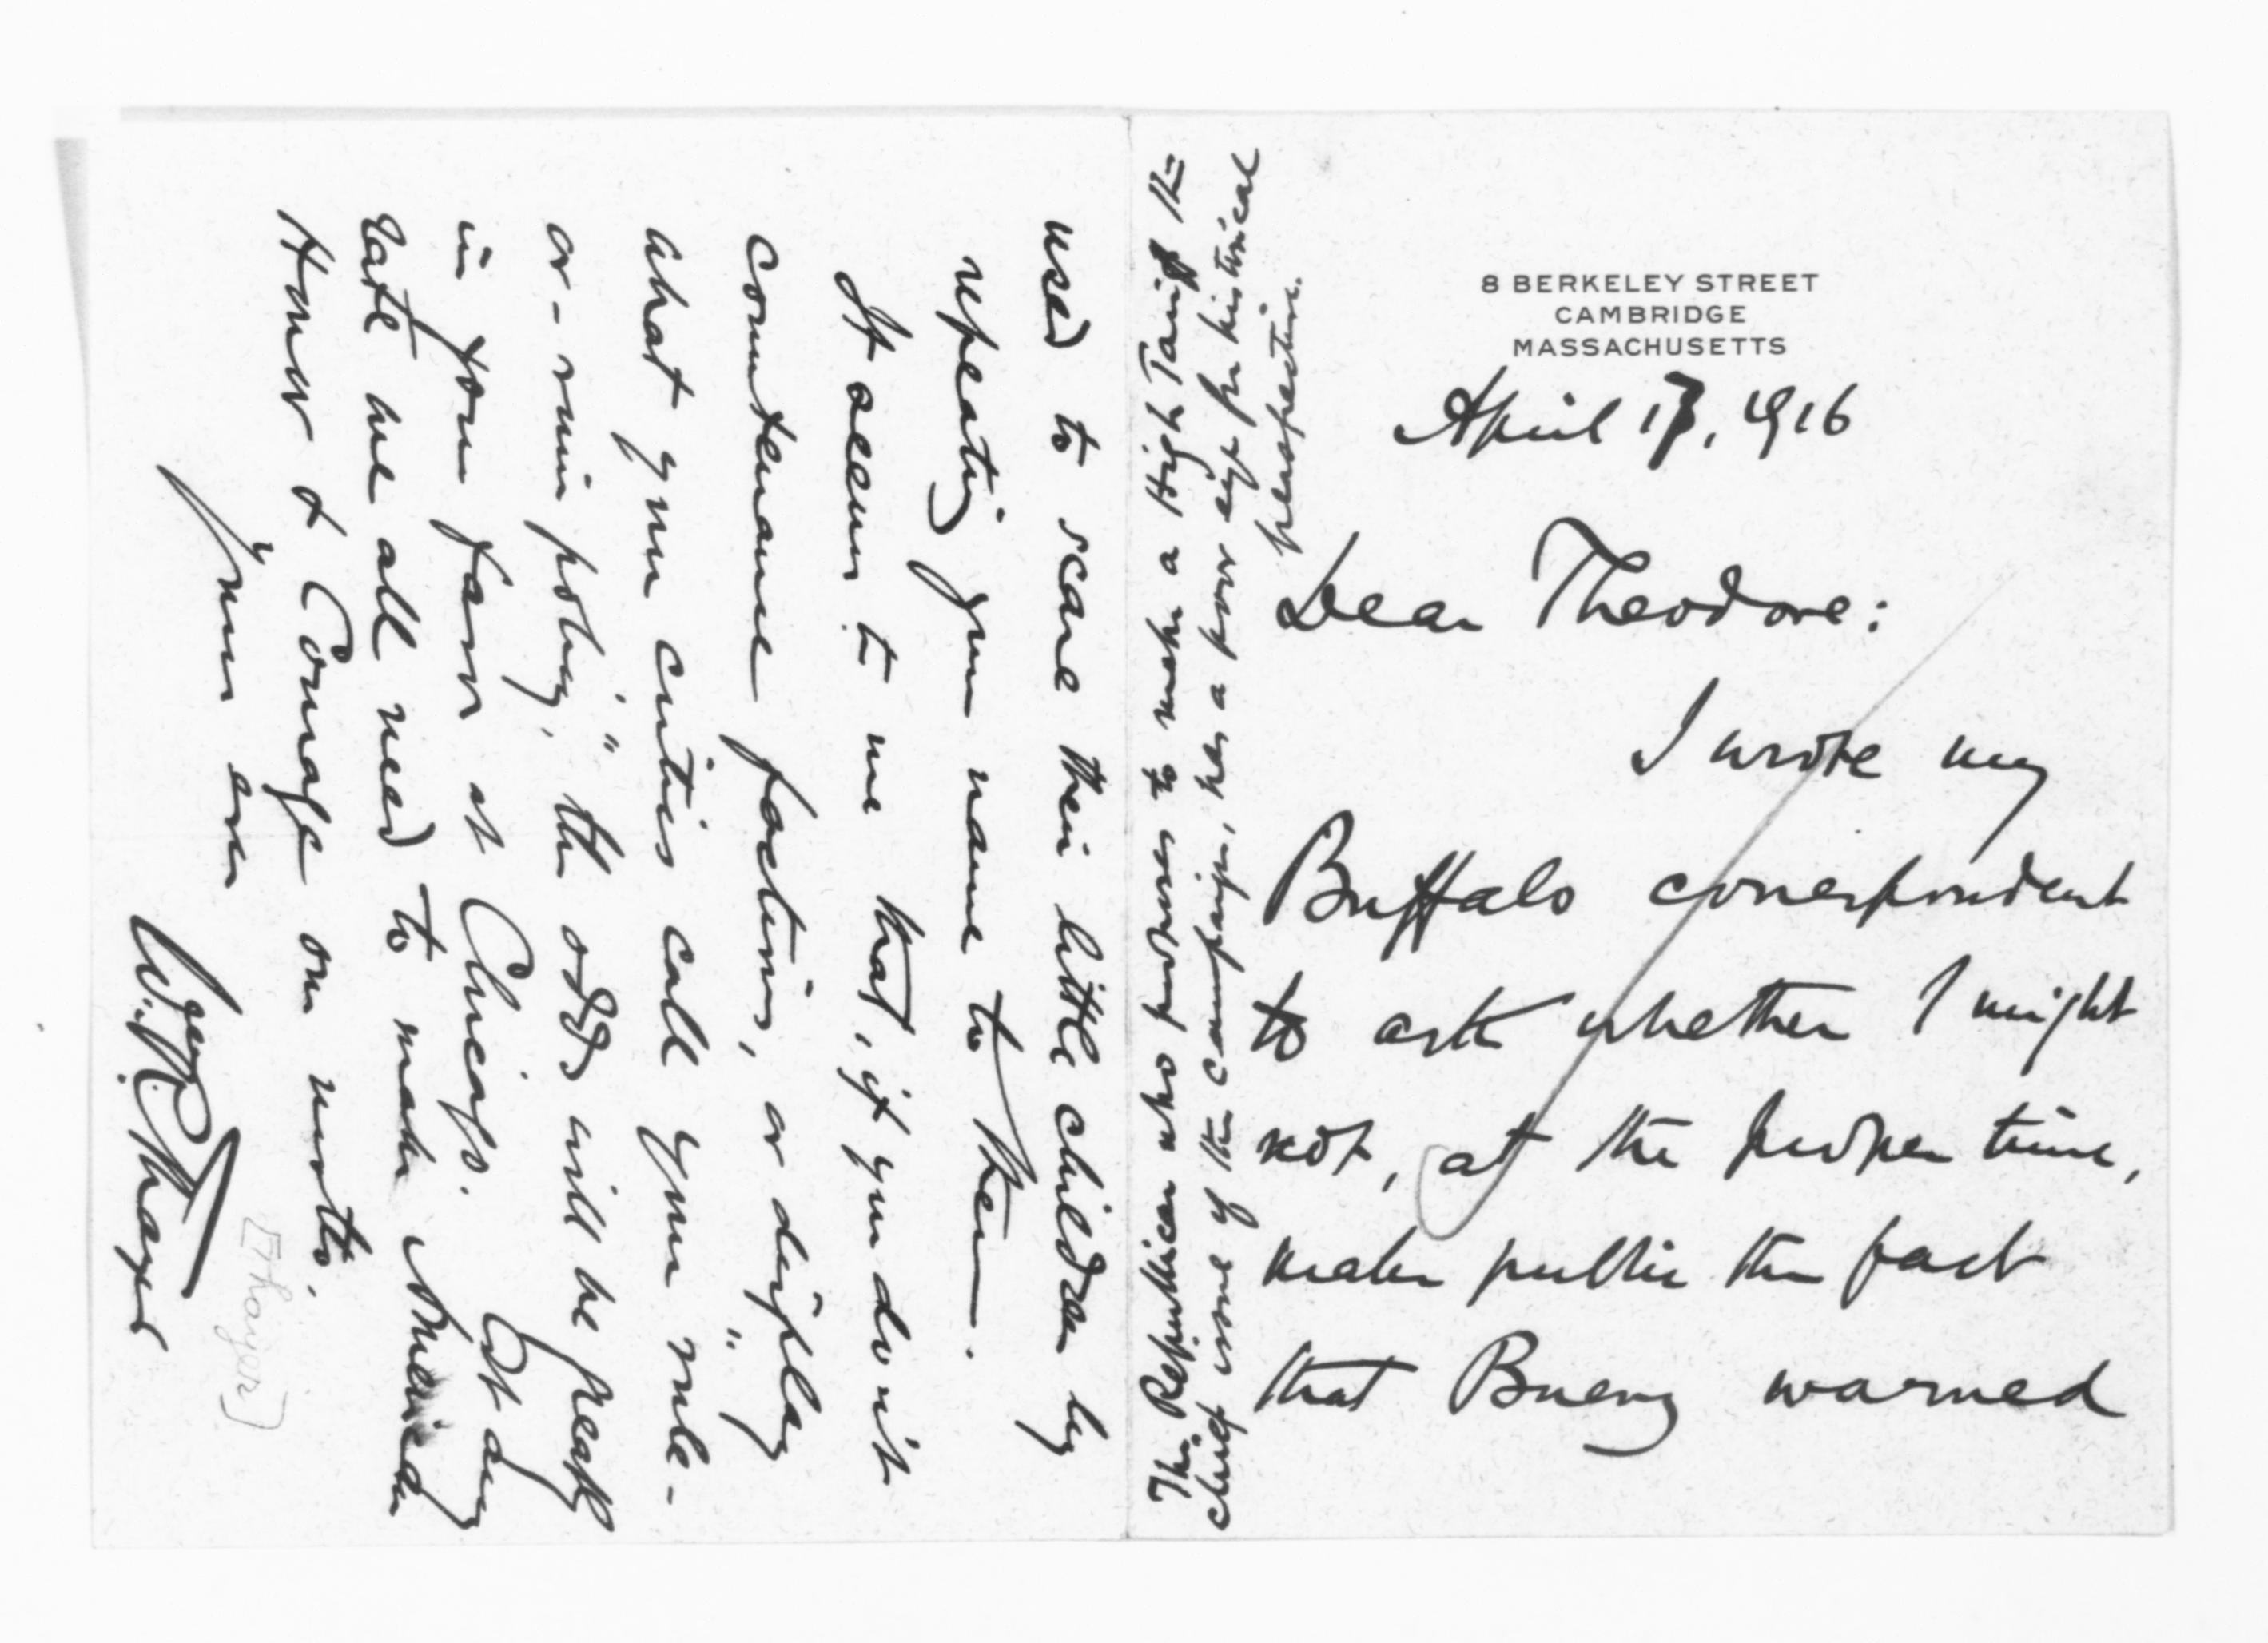 8 BERKELEY STREET
CAMBRIDGE
MASSACHUSETTS
April 17, 1916
Dear Theodore:
I wrote my
Buffalo correspondent
to ask whether I might
not, at the proper time,
make public the fact
that Bueny warned
used to scare their little children by
repeating your name to them.
It seems to me that, if you don't
countenance factions, or display
what your critics call your "rule-
or-ruin policy," the odds will be greatly
in your favor at Chicago. At any
rate we all need to make American
Honor & Courage our motto.
Yours ever
W. R. Thayer
[Thayer]
This Republican who proposes to make a High Tariff the
chief issue of the campaign, has a poor eye for historical
perspective.